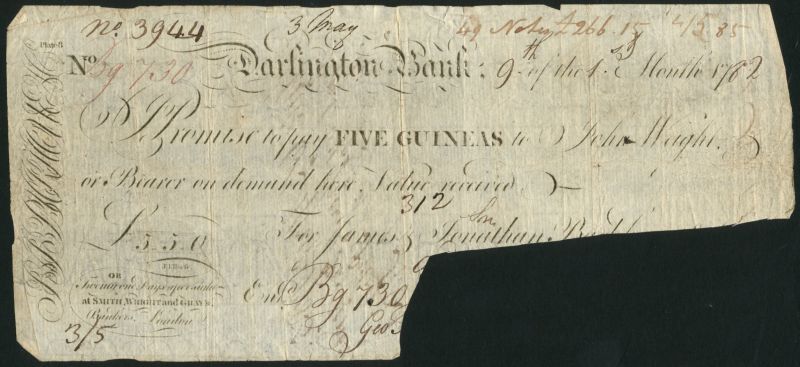 no. 3944 3 May 49 Notes £266.15
Plate B
No Bg 730 Darlington Bank, 9th of the 1st Month 1782
I Promise to pay FIVE GUINEAS to John Wright
or Bearer on demand here, Value received
312
£ 5 5 0 For James, Son Jonathan
OR
Twenty one Days after sight
at SMITH, WRIGHT and GRAY'S
Bankers London
Entd Bg 730
3/5 Geo